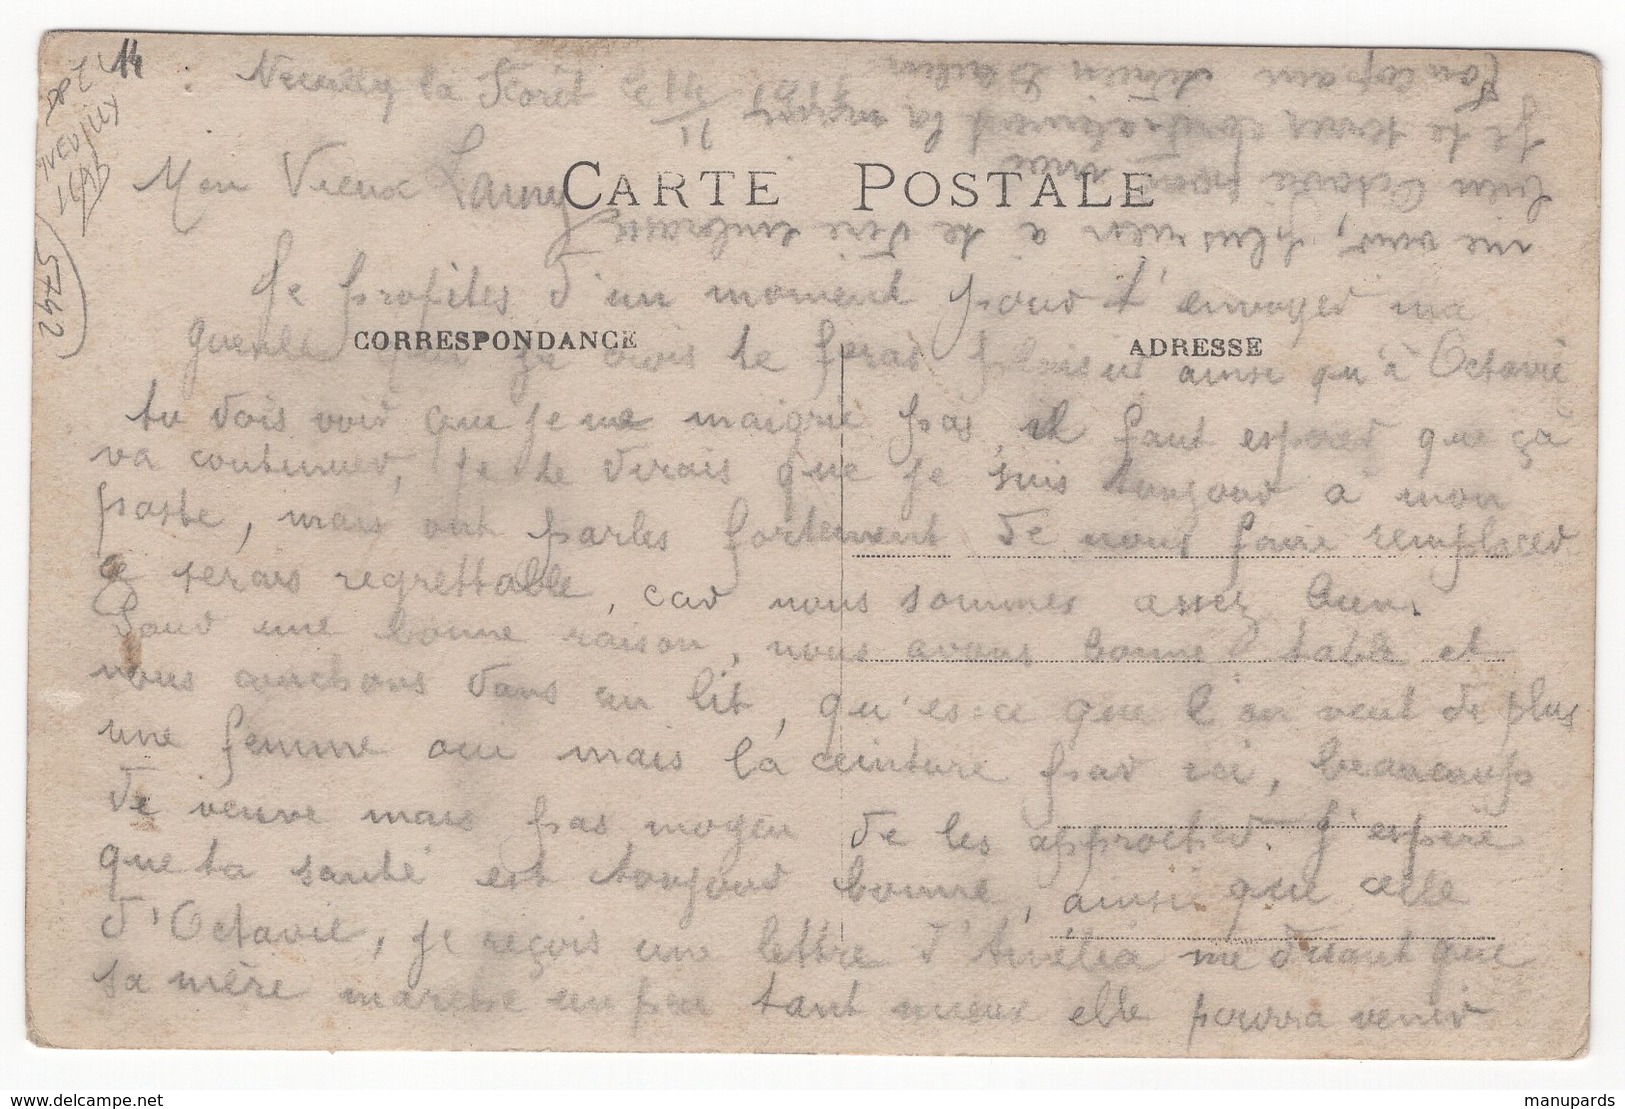 Neuilly la Forêt le 14/11 1915
Mon Vieux Lamy
CARTE POSTALE
Je profites d'un moment pour t'envoyer ma
CORRESPONDANCE
ADRESSE
gueule que je crois te feras plaisir ainsi qu'à Octavie
tu dois voir que je me maigrie pas, il faut esperer que ça
va continuer, je te dirais que je suis toujour a mon
poste, mais ont parles fortement de nous faire remplacer
ce serais regrettable, car nous sommes assez bien.
Pour une bonne raison, nous avons bonne table et
nous couchons dans un lit, qu'es-ce que l'on veut de plus
une femme oui mais la ceinture par ici, beaucoup
de veuve mais pas moyen de les approcher. J'espère
que ta santé est toujour bonne, ainsi que celle
d'Octavie, je reçois une lettre d'Amélia me disant que
sa mère marche un peu tant mieux elle pourra venir
me voir, plus rien a te dire embrasse
bien Octavie pour moi
Je te serre cordialement la main
Ton copain Adrien
14
5742
www.delcampe.net
manupards